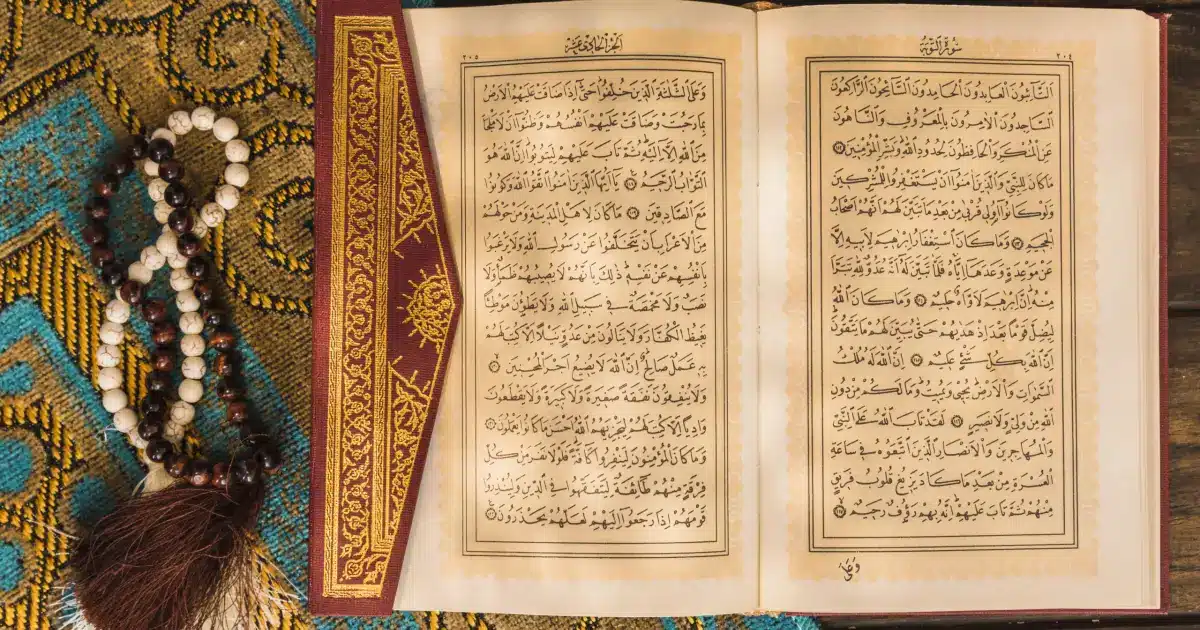 سُورَةُ التَّوْبَةِ
٢٠٤
اَلتَّائِبُونَ الْعَابِدُونَ الْحَامِدُونَ السَّائِحُونَ الرَّاكِعُونَ
السَّاجِدُونَ الْاٰمِرُونَ بِالْمَعْرُوفِ وَالنَّاهُونَ
عَنِ الْمُنْكَرِ وَالْحَافِظُونَ لِحُدُودِ اللّٰهِ وَبَشِّرِ الْمُؤْمِنِينَ ١١٢
مَا كَانَ لِلنَّبِيِّ وَالَّذِينَ اٰمَنُوا اَنْ يَسْتَغْفِرُوا لِلْمُشْرِكِينَ
وَلَوْ كَانُوا اُولِي قُرْبٰى مِنْ بَعْدِ مَا تَبَيَّنَ لَهُمْ اَنَّهُمْ اَصْحَابُ
الْجَحِيمِ ١١٣ وَمَا كَانَ اسْتِغْفَارُ اِبْرٰهِيمَ لِاَبِيهِ اِلَّا
عَنْ مَوْعِدَةٍ وَعَدَهَا اِيَّاهُ فَلَمَّا تَبَيَّنَ لَهُ اَنَّهُ عَدُوٌّ لِلّٰهِ تَبَرَّاَ
مِنْهُ اِنَّ اِبْرٰهِيمَ لَاَوَّاهٌ حَلِيمٌ ١١٤ وَمَا كَانَ اللّٰهُ
لِيُضِلَّ قَوْمًا بَعْدَ اِذْ هَدٰيهُمْ حَتّٰى يُبَيِّنَ لَهُمْ مَا يَتَّقُونَ
اِنَّ اللّٰهَ بِكُلِّ شَيْءٍ عَلِيمٌ ١١٥ اِنَّ اللّٰهَ لَهُ مُلْكُ
السَّمٰوَاتِ وَالْاَرْضِ يُحْيِي وَيُمِيتُ وَمَا لَكُمْ مِنْ دُونِ
اللّٰهِ مِنْ وَلِيٍّ وَلَا نَصِيرٍ ١١٦ لَقَدْ تَابَ اللّٰهُ عَلَى النَّبِيِّ
وَالْمُهَاجِرِينَ وَالْاَنْصَارِ الَّذِينَ اتَّبَعُوهُ فِي سَاعَةِ
الْعُسْرَةِ مِنْ بَعْدِ مَا كَادَ يَزِيغُ قُلُوبُ فَرِيقٍ
مِنْهُمْ ثُمَّ تَابَ عَلَيْهِمْ اِنَّهُ بِهِمْ رَؤُفٌ رَحِيمٌ ١١٧
وَعَلَى
اَلْجُزْءُ الْحَادِي عَشَرَ
٢٠٥
وَعَلَى الثَّلٰثَةِ الَّذِينَ خُلِّفُوا حَتّٰى اِذَا ضَاقَتْ عَلَيْهِمُ الْاَرْضُ
بِمَا رَحُبَتْ وَضَاقَتْ عَلَيْهِمْ اَنْفُسُهُمْ وَظَنُّوا اَنْ لَا مَلْجَاَ
مِنَ اللّٰهِ اِلَّا اِلَيْهِ ثُمَّ تَابَ عَلَيْهِمْ لِيَتُوبُوا اِنَّ اللّٰهَ هُوَ
التَّوَّابُ الرَّحِيمُ ١١٨ يَا اَيُّهَا الَّذِينَ اٰمَنُوا اتَّقُوا اللّٰهَ وَكُونُوا
مَعَ الصَّادِقِينَ ١١٩ مَا كَانَ لِاَهْلِ الْمَدِينَةِ وَمَنْ حَوْلَهُمْ
مِنَ الْاَعْرَابِ اَنْ يَتَخَلَّفُوا عَنْ رَسُولِ اللّٰهِ وَلَا يَرْغَبُوا
بِاَنْفُسِهِمْ عَنْ نَفْسِهِ ذٰلِكَ بِاَنَّهُمْ لَا يُصِيبُهُمْ ظَمَاٌ وَلَا
نَصَبٌ وَلَا مَخْمَصَةٌ فِي سَبِيلِ اللّٰهِ وَلَا يَطَؤُنَ مَوْطِئًا
يَغِيظُ الْكُفَّارَ وَلَا يَنَالُونَ مِنْ عَدُوٍّ نَيْلًا اِلَّا كُتِبَ لَهُمْ
بِهِ عَمَلٌ صَالِحٌ اِنَّ اللّٰهَ لَا يُضِيعُ اَجْرَ الْمُحْسِنِينَ ١٢٠
وَلَا يُنْفِقُونَ نَفَقَةً صَغِيرَةً وَلَا كَبِيرَةً وَلَا يَقْطَعُونَ
وَادِيًا اِلَّا كُتِبَ لَهُمْ لِيَجْزِيَهُمُ اللّٰهُ اَحْسَنَ مَا كَانُوا يَعْمَلُونَ ١٢١
وَمَا كَانَ الْمُؤْمِنُونَ لِيَنْفِرُوا كَافَّةً فَلَوْلَا نَفَرَ مِنْ كُلِّ
فِرْقَةٍ مِنْهُمْ طَائِفَةٌ لِيَتَفَقَّهُوا فِي الدِّينِ وَلِيُنْذِرُوا
قَوْمَهُمْ اِذَا رَجَعُوا اِلَيْهِمْ لَعَلَّهُمْ يَحْذَرُونَ ١٢٢